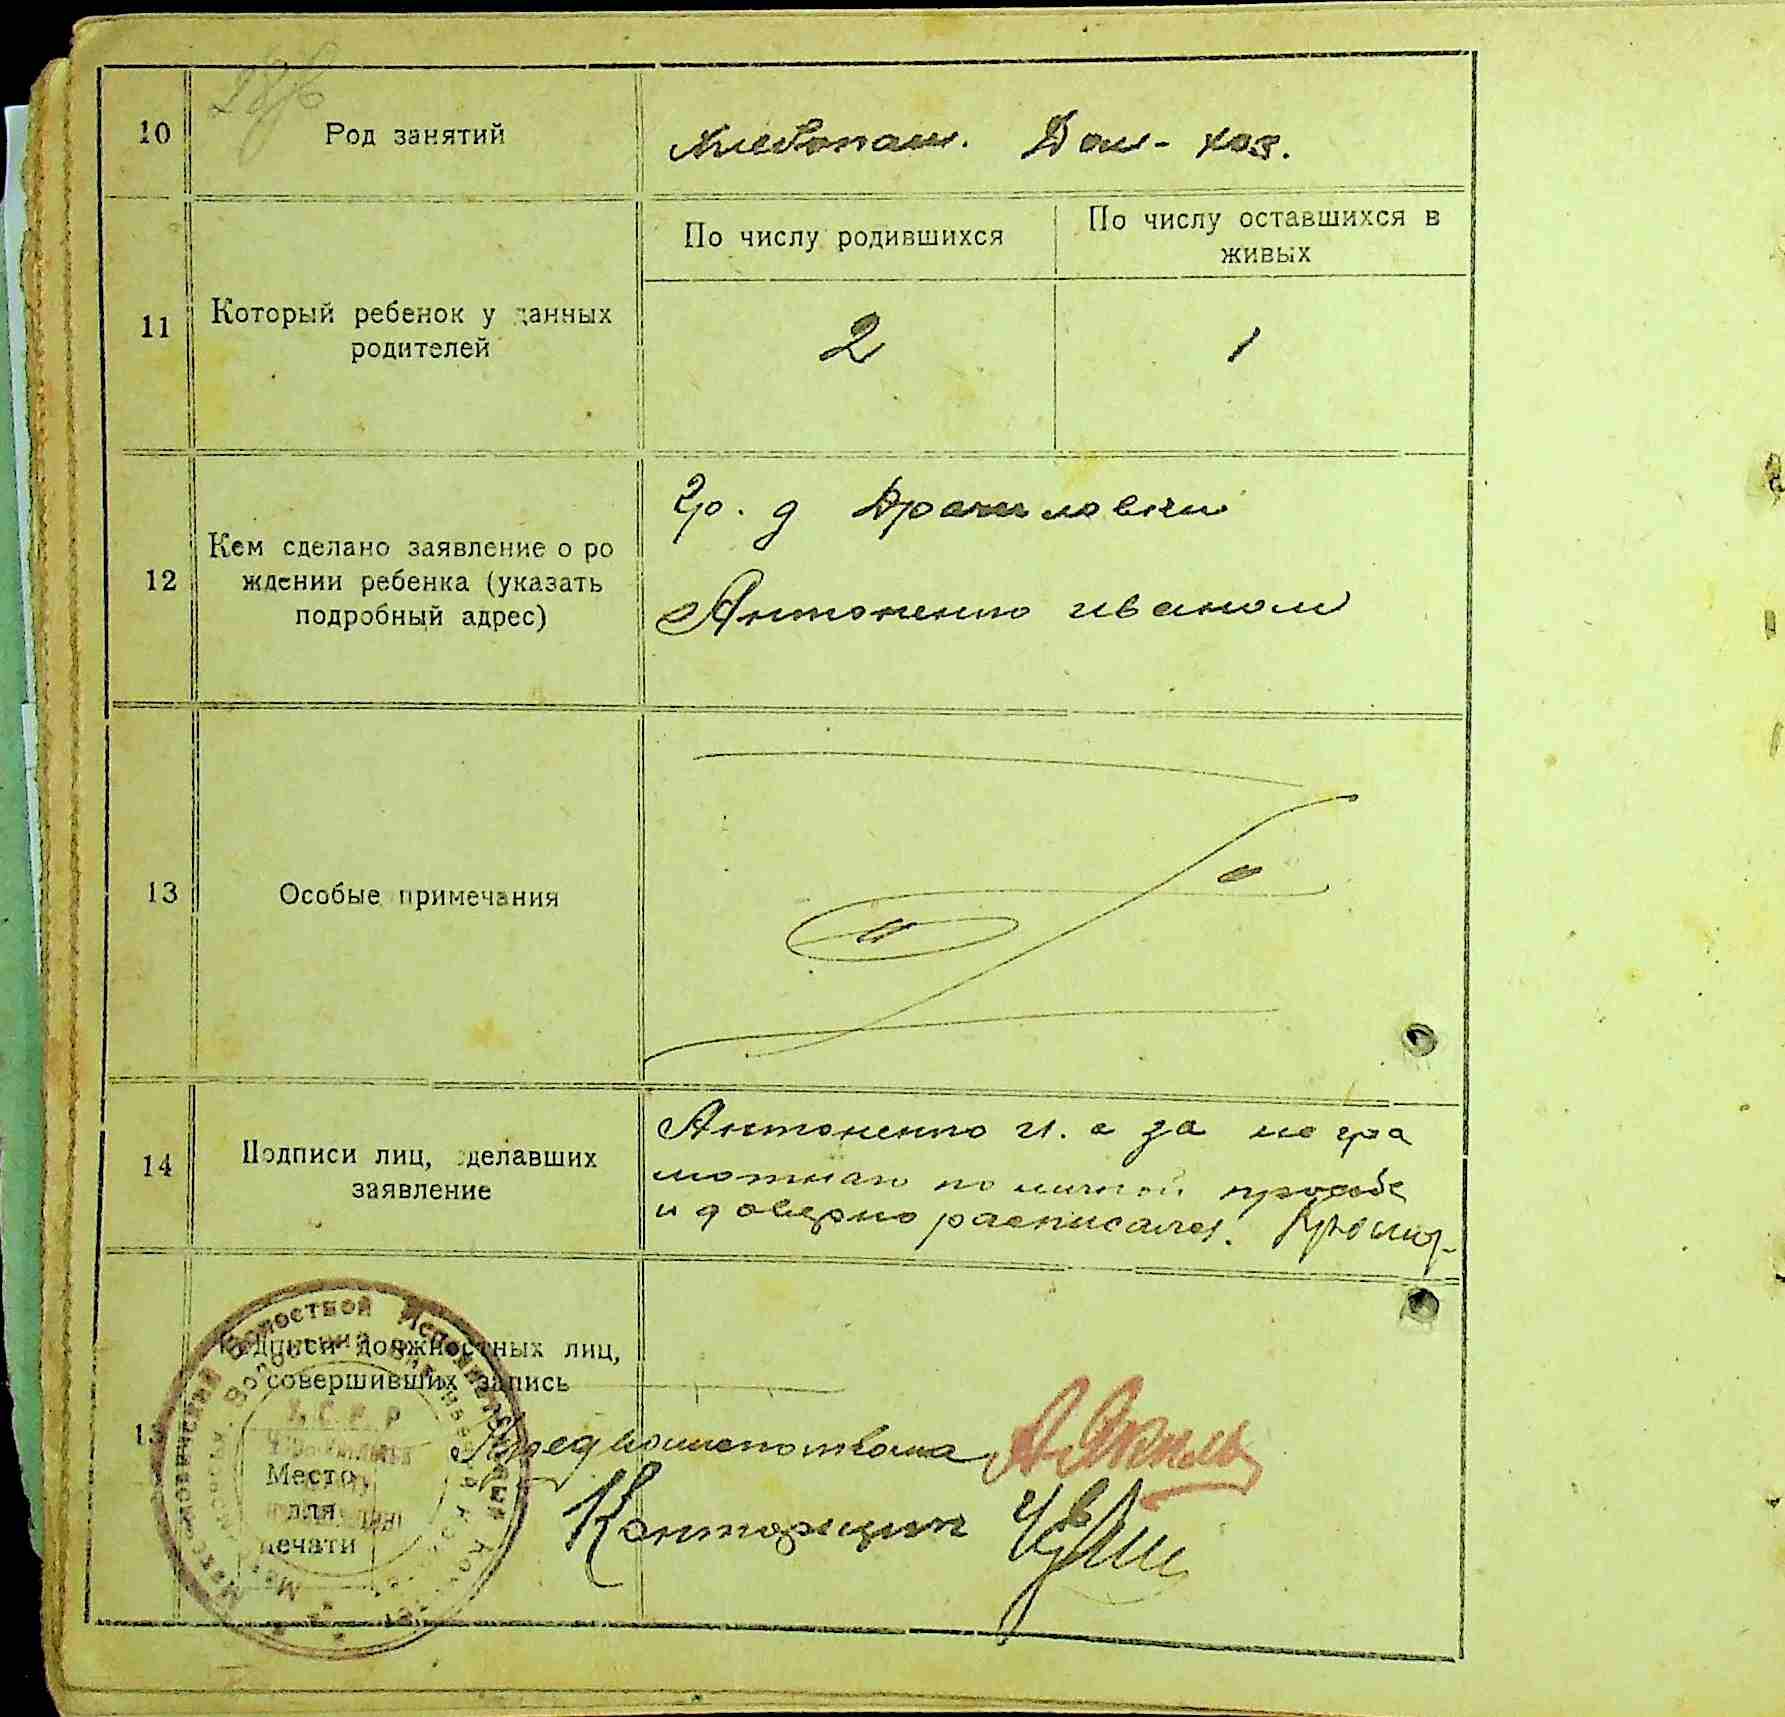 10
Род занятий
хлебопаш. Дом-хоз.
11
Который ребенок у данных
родителей
По числу родившихся
По числу оставшихся в
живых
2
1
12
Кем сделано заявление о ро
ждении ребенка (указать
подробный адрес)
Гр. д
Антоненко иваном
13
Особые примечания
14
Подписи лиц, сделавших
заявление
Антоненко и. а за не гра
мотнаго по личной просьбе
и доверию расписался.
Подписи должностных лиц,
совершивших запись
Место
для
печати
Волостной Исполнительный Комитет
Конторщик